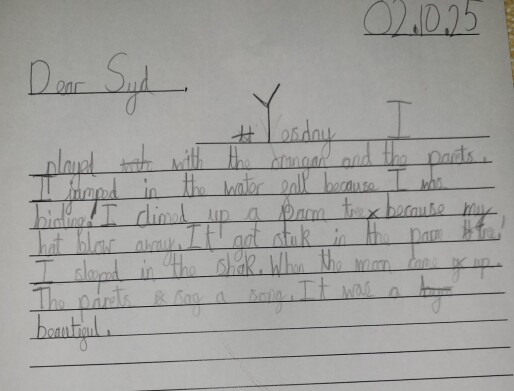 02.10.25
Dear Syd,
Yesday I
played with the orangan and the parits.
I jumped in the water fall because I was
boiling! I climed up a parm tree because my
hat blow away. It got stuk in the parm tree!
I sleeped in the shak. When the moon came up.
The parits sag a song. It was a
beautigul.